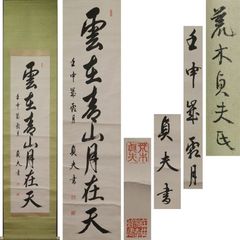 雲在青山月在天
壬申歳霜月
貞夫書
雲在青山月在天
壬申歳霜月
貞夫書
荒木貞夫
貞夫書
壬申歳霜月
荒木貞夫氏